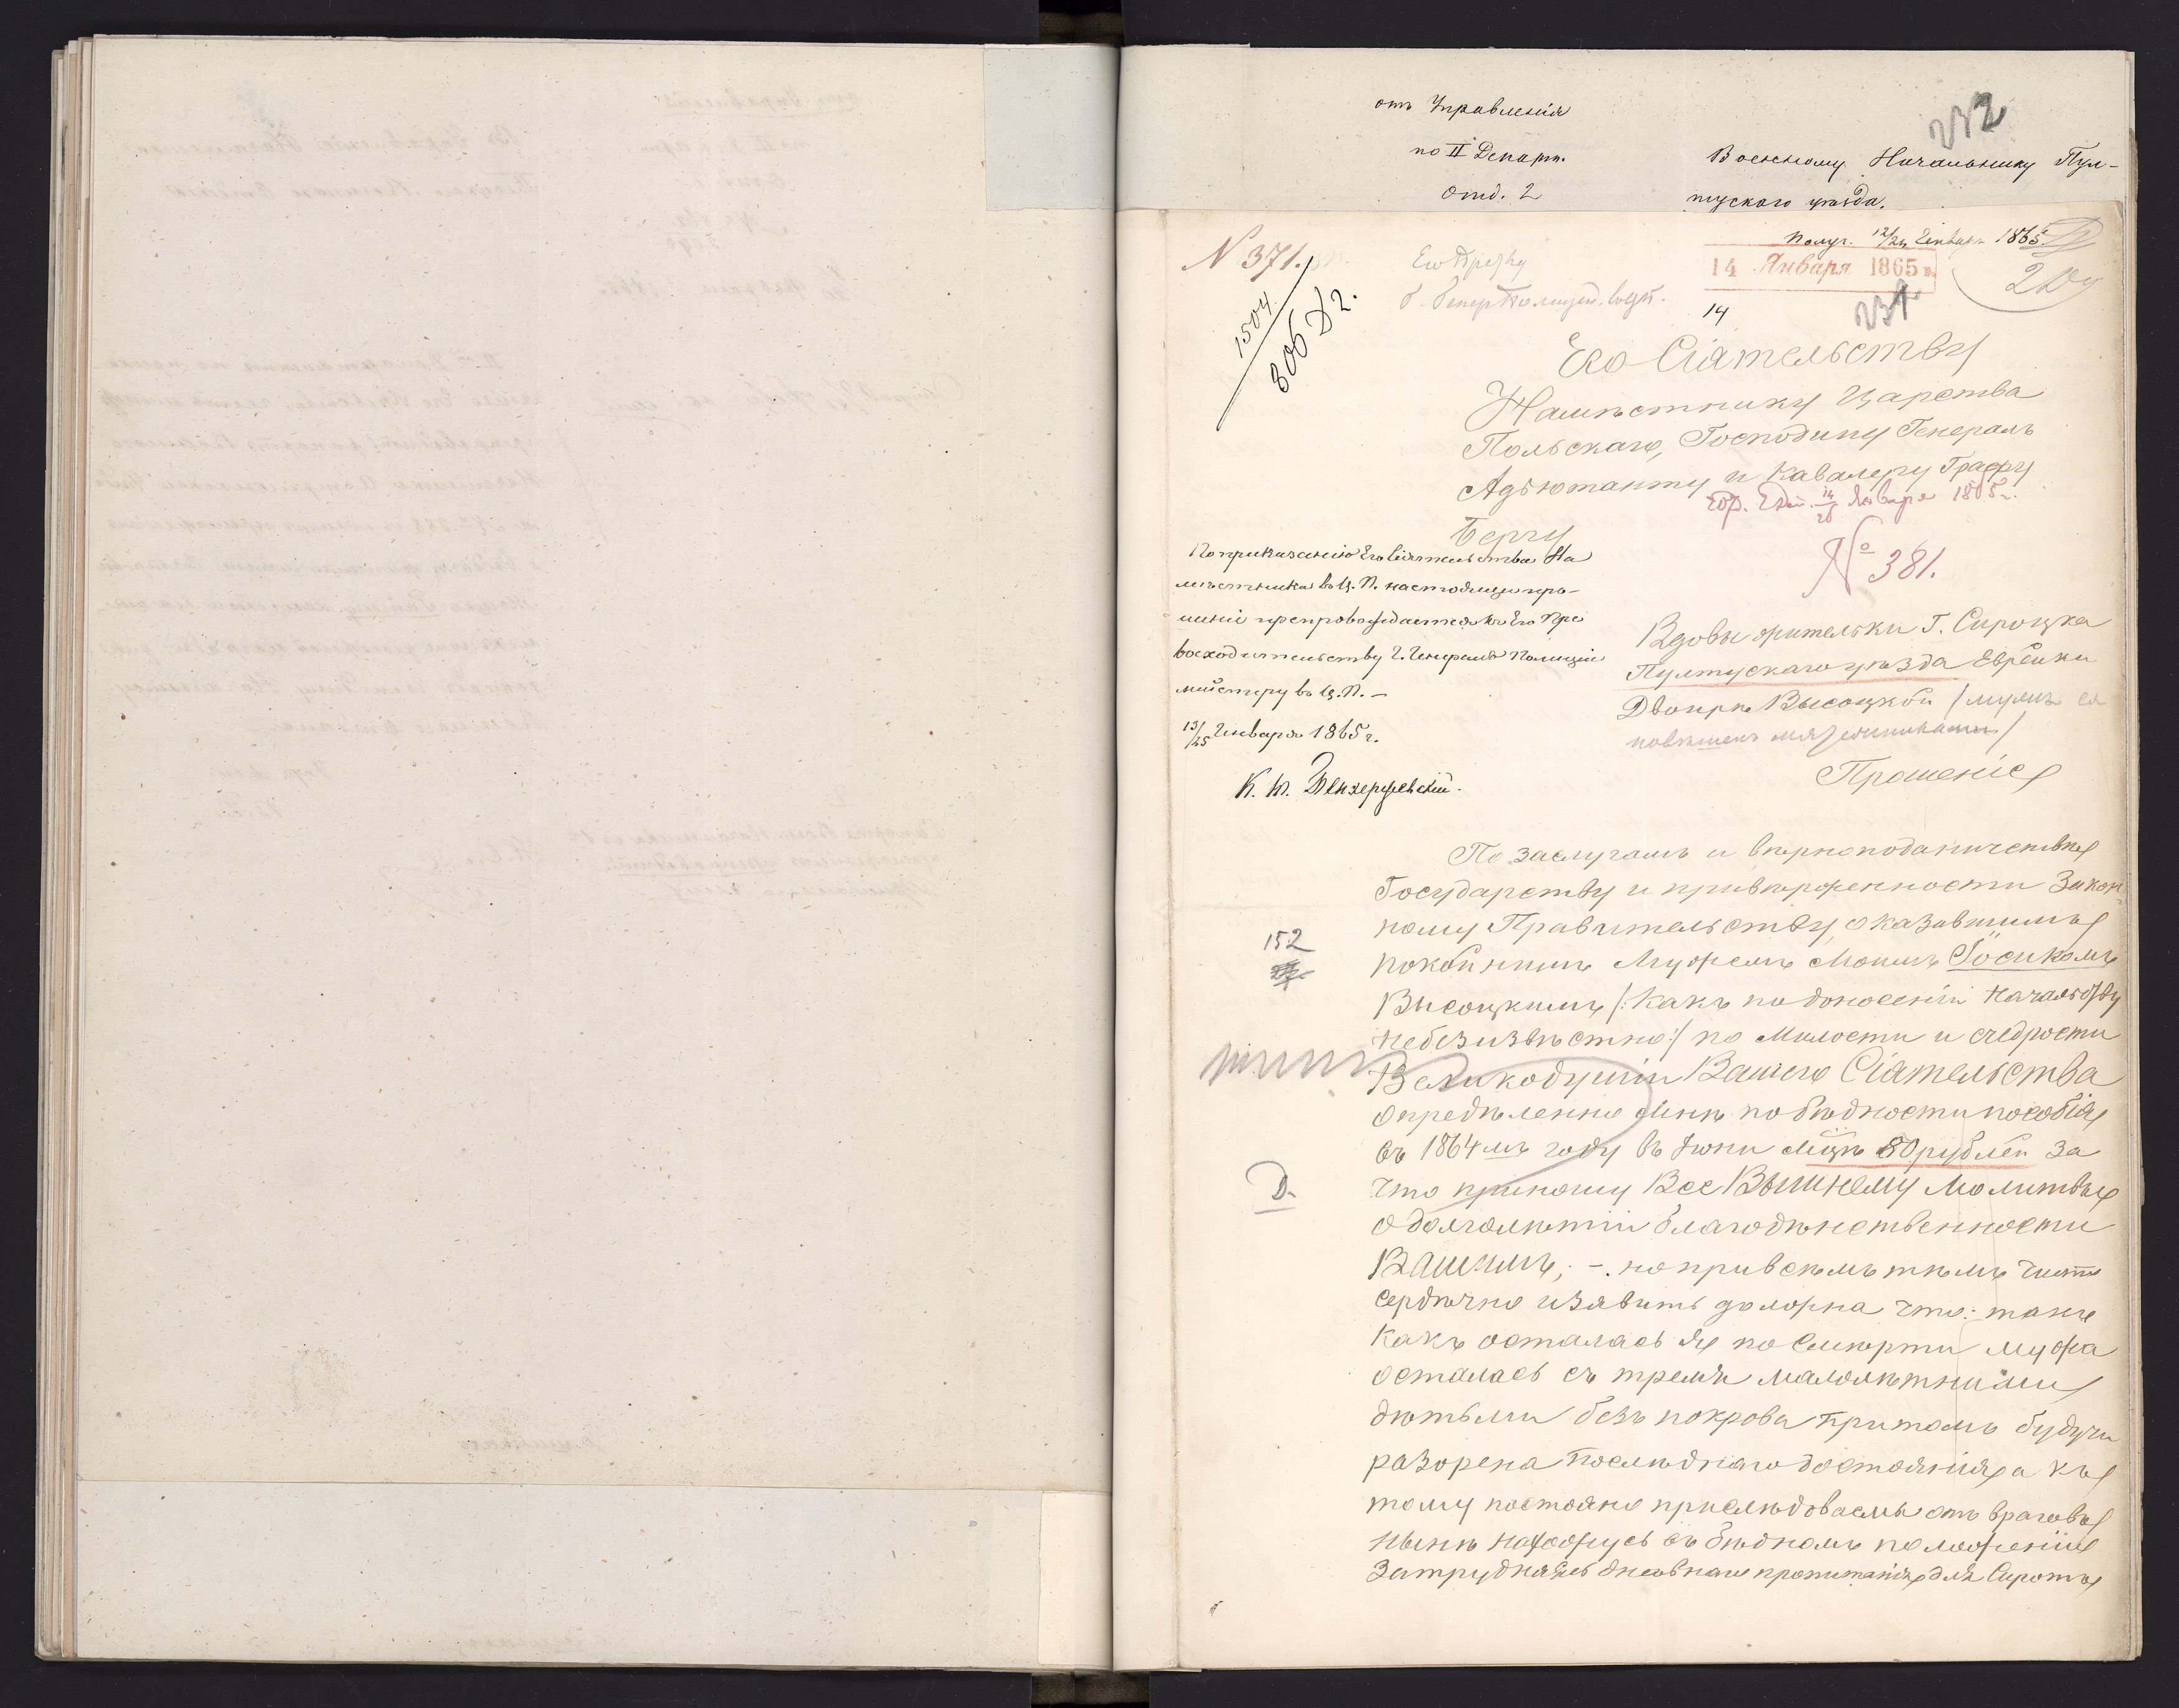 отъ Управленія
по II Департ.
Отд. 2
232
Военному Начальнику Пул-
тускаго уѣзда.
N 371.
1504
306 Д2.
Получ. 12/24 Января 1865
14 Января 1865 г.
14
231
Его Сіятельству
Намѣстнику Царства
Польскаго, Господину Генералъ
Адъютанту и Кавалеру Графу
Бергу
14/26 Января 1865 г.
№ 381.
По приказанію Его Сіятельства На
мѣстника въ Ц. П. настоящее про-
шеніе препровождается къ Его Пре
восходительству Г. Генералъ Полиціи
мейстеру въ Ц. П. –
13/25 Января 1865 г.
Вдовы жительки Г. Сироцка
Пултускаго уѣзда Еврейки
Двойры Высоцкой / мужъ ея
повѣшенъ мятежниками /
Прошеніе
По заслугамъ и вѣрноподаничествѣ
Государству и приверженности Закон-
ному Правительству, оказавшимъ
покойнымъ Мужемъ Моимъ Іосикомъ
Высоцкимъ /: какъ по донесеніи Начальству
небезизвѣстно :/ по Милости и счедрости
Великодушіи Вашего Сіятельства
опредѣленно Мнѣ по бѣдности пособія
въ 1864мъ году въ Іюни Мцѣ 50 рублей за
что приношу ВсеВышнему Молитвы
о долголѣтіи благодѣнственности
Вашимъ; –. но при всемъ тѣмъ чисто
сердѣчно изявить должна что: такъ
какъ осталась я по Смерти мужа
осталась съ тремя малолѣтними
дѣтьми безъ покрова притомъ будучи
разорена послѣдняго достоянія, а къ
тому постояно прислѣдоваемы отъ враговъ
нынѣ нахожусь въ бѣдномъ положеніи
Затрудняясь дневнаго пропитанія для Сиротъ
152
D.